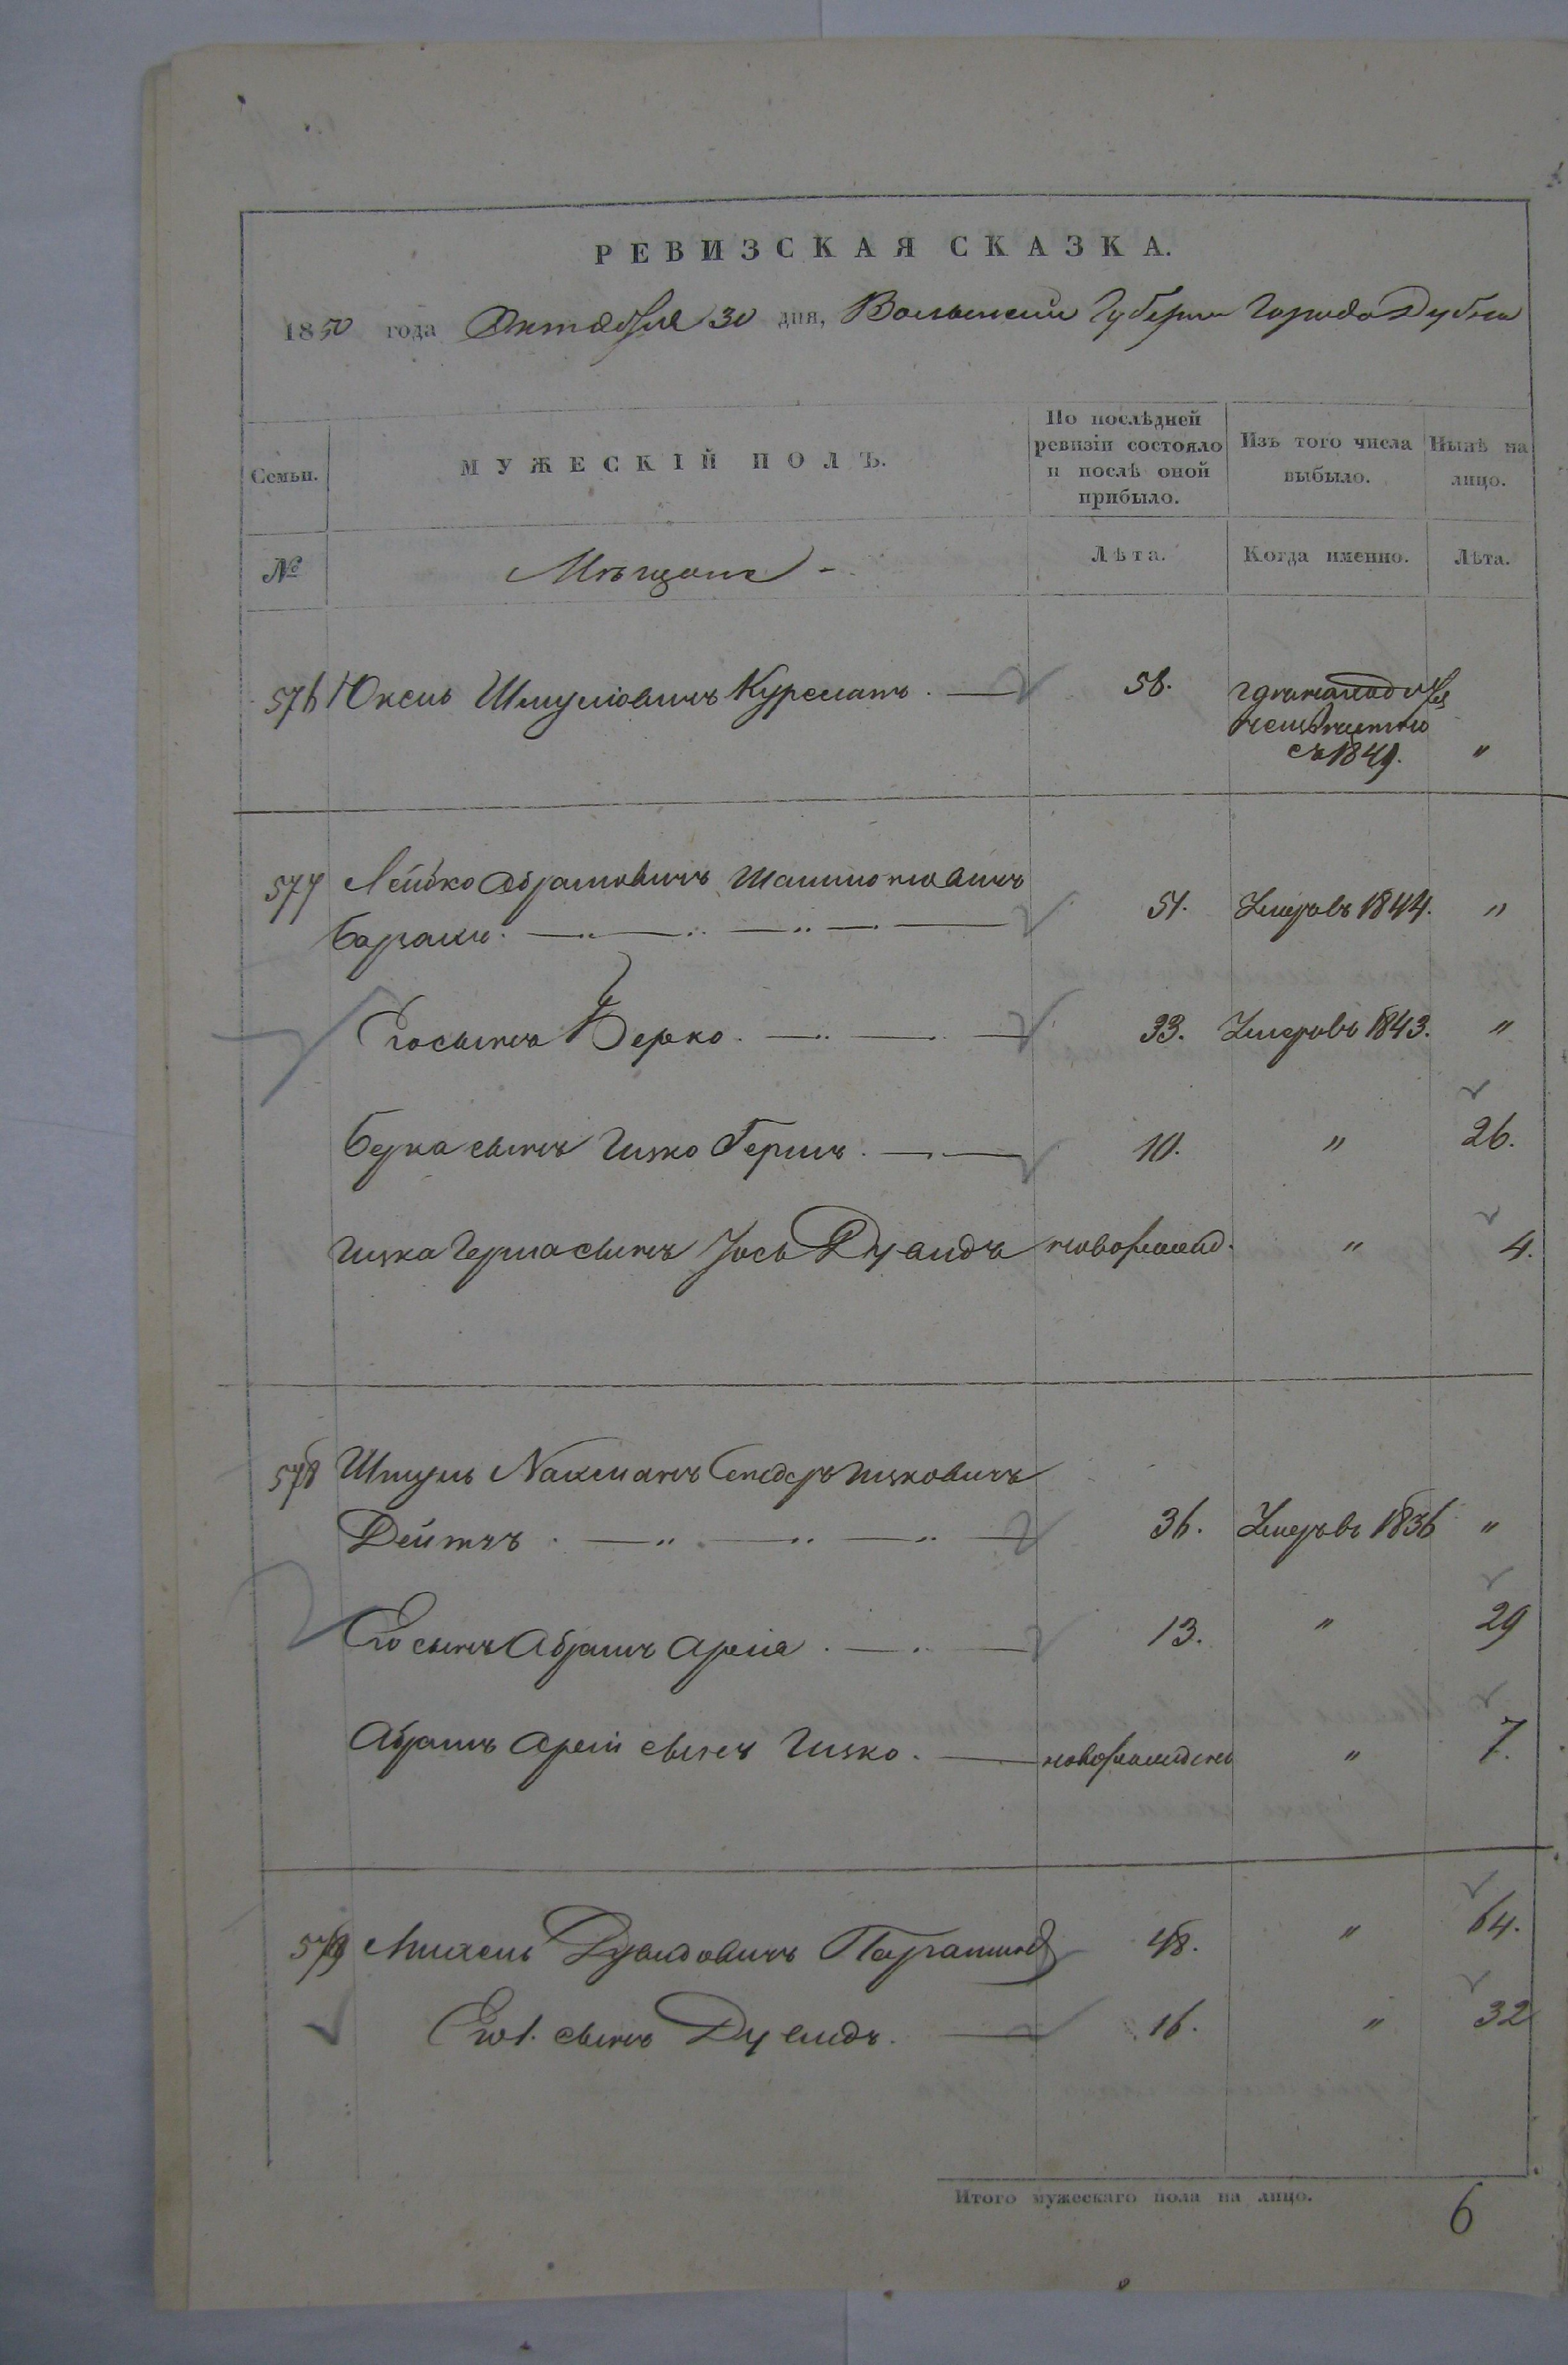 РЕВИЗСКАЯ СКАЗКА.
1850 года Октября 30 дня, Волынской Губерніи Города Дубна
Семьи. МУЖЕСКІЙ ПОЛЪ. По послѣдней ревизіи состояло и послѣ оной прибыло. Изъ того числа выбыло. Нынѣ на лицо.
№ Мѣщане - Лѣта. Когда именно. Лѣта.
576 Юкель Шмулiовичъ 58.
съ 1849. "
577 Лейбко Абрамовичъ
51. Умеръ въ 1844. "
Его сынъ Берко. 33. Умеръ въ 1843. "
Берка сынъ Ицко Гершъ. 10. " 26.
Ицка Герша сынъ Іось Дувидъ новорожд. " 4.
578 Шмуль Ицковичъ
Дейтчъ. 36. Умеръ въ 1836 "
Его сынъ Абрамъ Арiя. 13. " 29
Абрамъ Арiи сынъ Ицко. новорожденъ " 7.
579 Михель Дувидовичъ 48. " 64.
Его 1. сынъ Дувидъ. 16. " 32
Итого мужескаго пола на лицо. 6